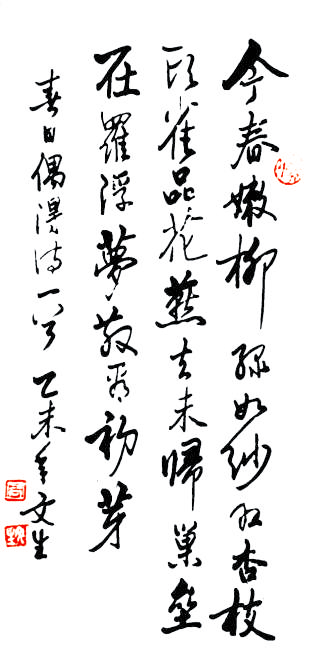 今春嫩柳绿如纱红杏枝
头雀品花燕去未歸巢壘
在羅浮夢散看初芽
春日偶得诗一首 乙未年文生